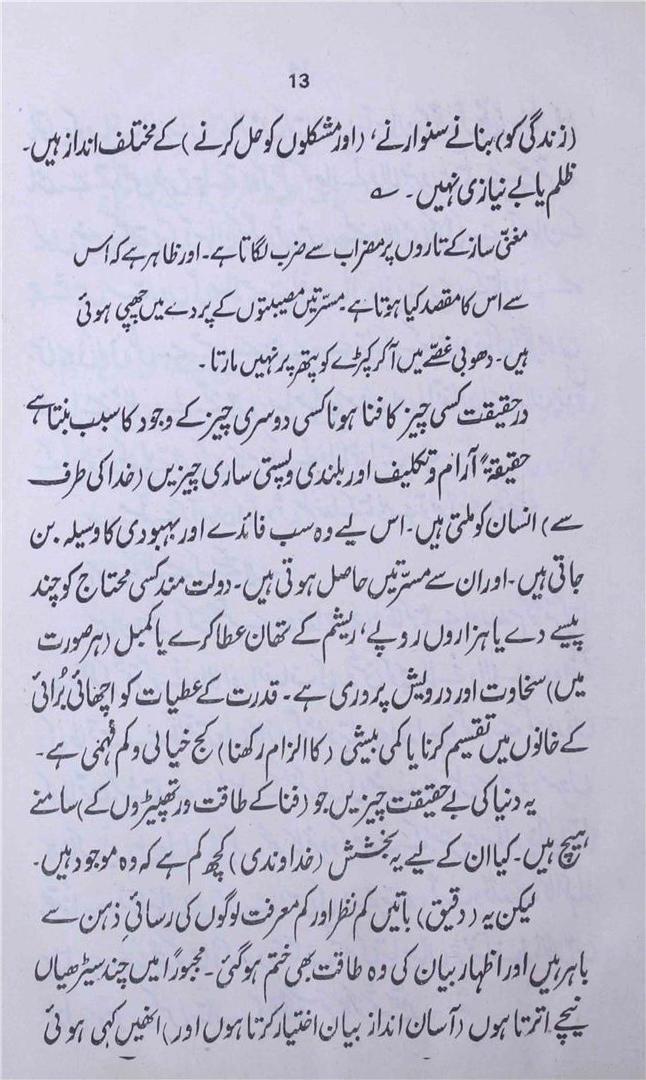 13
(زندگی کو) بنانے سنوارنے، (اور مشکلوں کو حل کرنے) کے مختلف انداز ہیں۔
ظلم یا بے نیازی نہیں۔ ؎
مغنّی ساز کے تاروں پر مضراب سے ضرب لگاتا ہے۔ اور ظاہر ہے کہ اس
سے اس کا مقصد کیا ہوتا ہے۔ مسرّتیں مصیبتوں کے پردے میں چھپی ہوئی
ہیں۔ دھوبی غصّے میں آکر کپڑے کو پتھر پر نہیں مارتا۔
درحقیقت کسی چیز کا فنا ہونا کسی دوسری چیز کے وجود کا سبب بنتا ہے
حقیقۃً آرام و تکلیف اور بلندی و پستی ساری چیزیں (خدا کی طرف
سے) انسان کو ملتی ہیں۔ اس لیے وہ سب فائدے اور بہبودی کا وسیلہ بن
جاتی ہیں۔ اور ان سے مسرّتیں حاصل ہوتی ہیں۔ دولت مند کسی محتاج کو چند
پیسے دے یا ہزاروں روپے، ریشم کے تھان عطا کرے یا کمبل (ہر صورت
میں) سخاوت اور درویش پروری ہے۔ قدرت کے عطیات کو اچھائی بُرائی
کے خانوں میں تقسیم کرنا یا کمی بیشی (کا الزام رکھنا) کج خیالی و کم فہمی ہے۔
یہ دنیا کی بے حقیقت چیزیں جو (فنا کے طاقت ور تھپیڑوں کے) سامنے
ہیچ ہیں۔ کیا ان کے لیے یہ بخشش (خداوندی) کچھ کم ہے کہ وہ موجود ہیں۔
لیکن یہ (دقیق) باتیں کم نظر اور کم معرفت لوگوں کی رسائیِ ذہن سے
باہر ہیں اور اظہار بیان کی وہ طاقت بھی ختم ہوگئی۔ مجبوراً میں چند سیڑھیاں
نیچے اترتا ہوں (آسان انداز بیان اختیار کرتا ہوں اور) انھیں کہی ہوئی